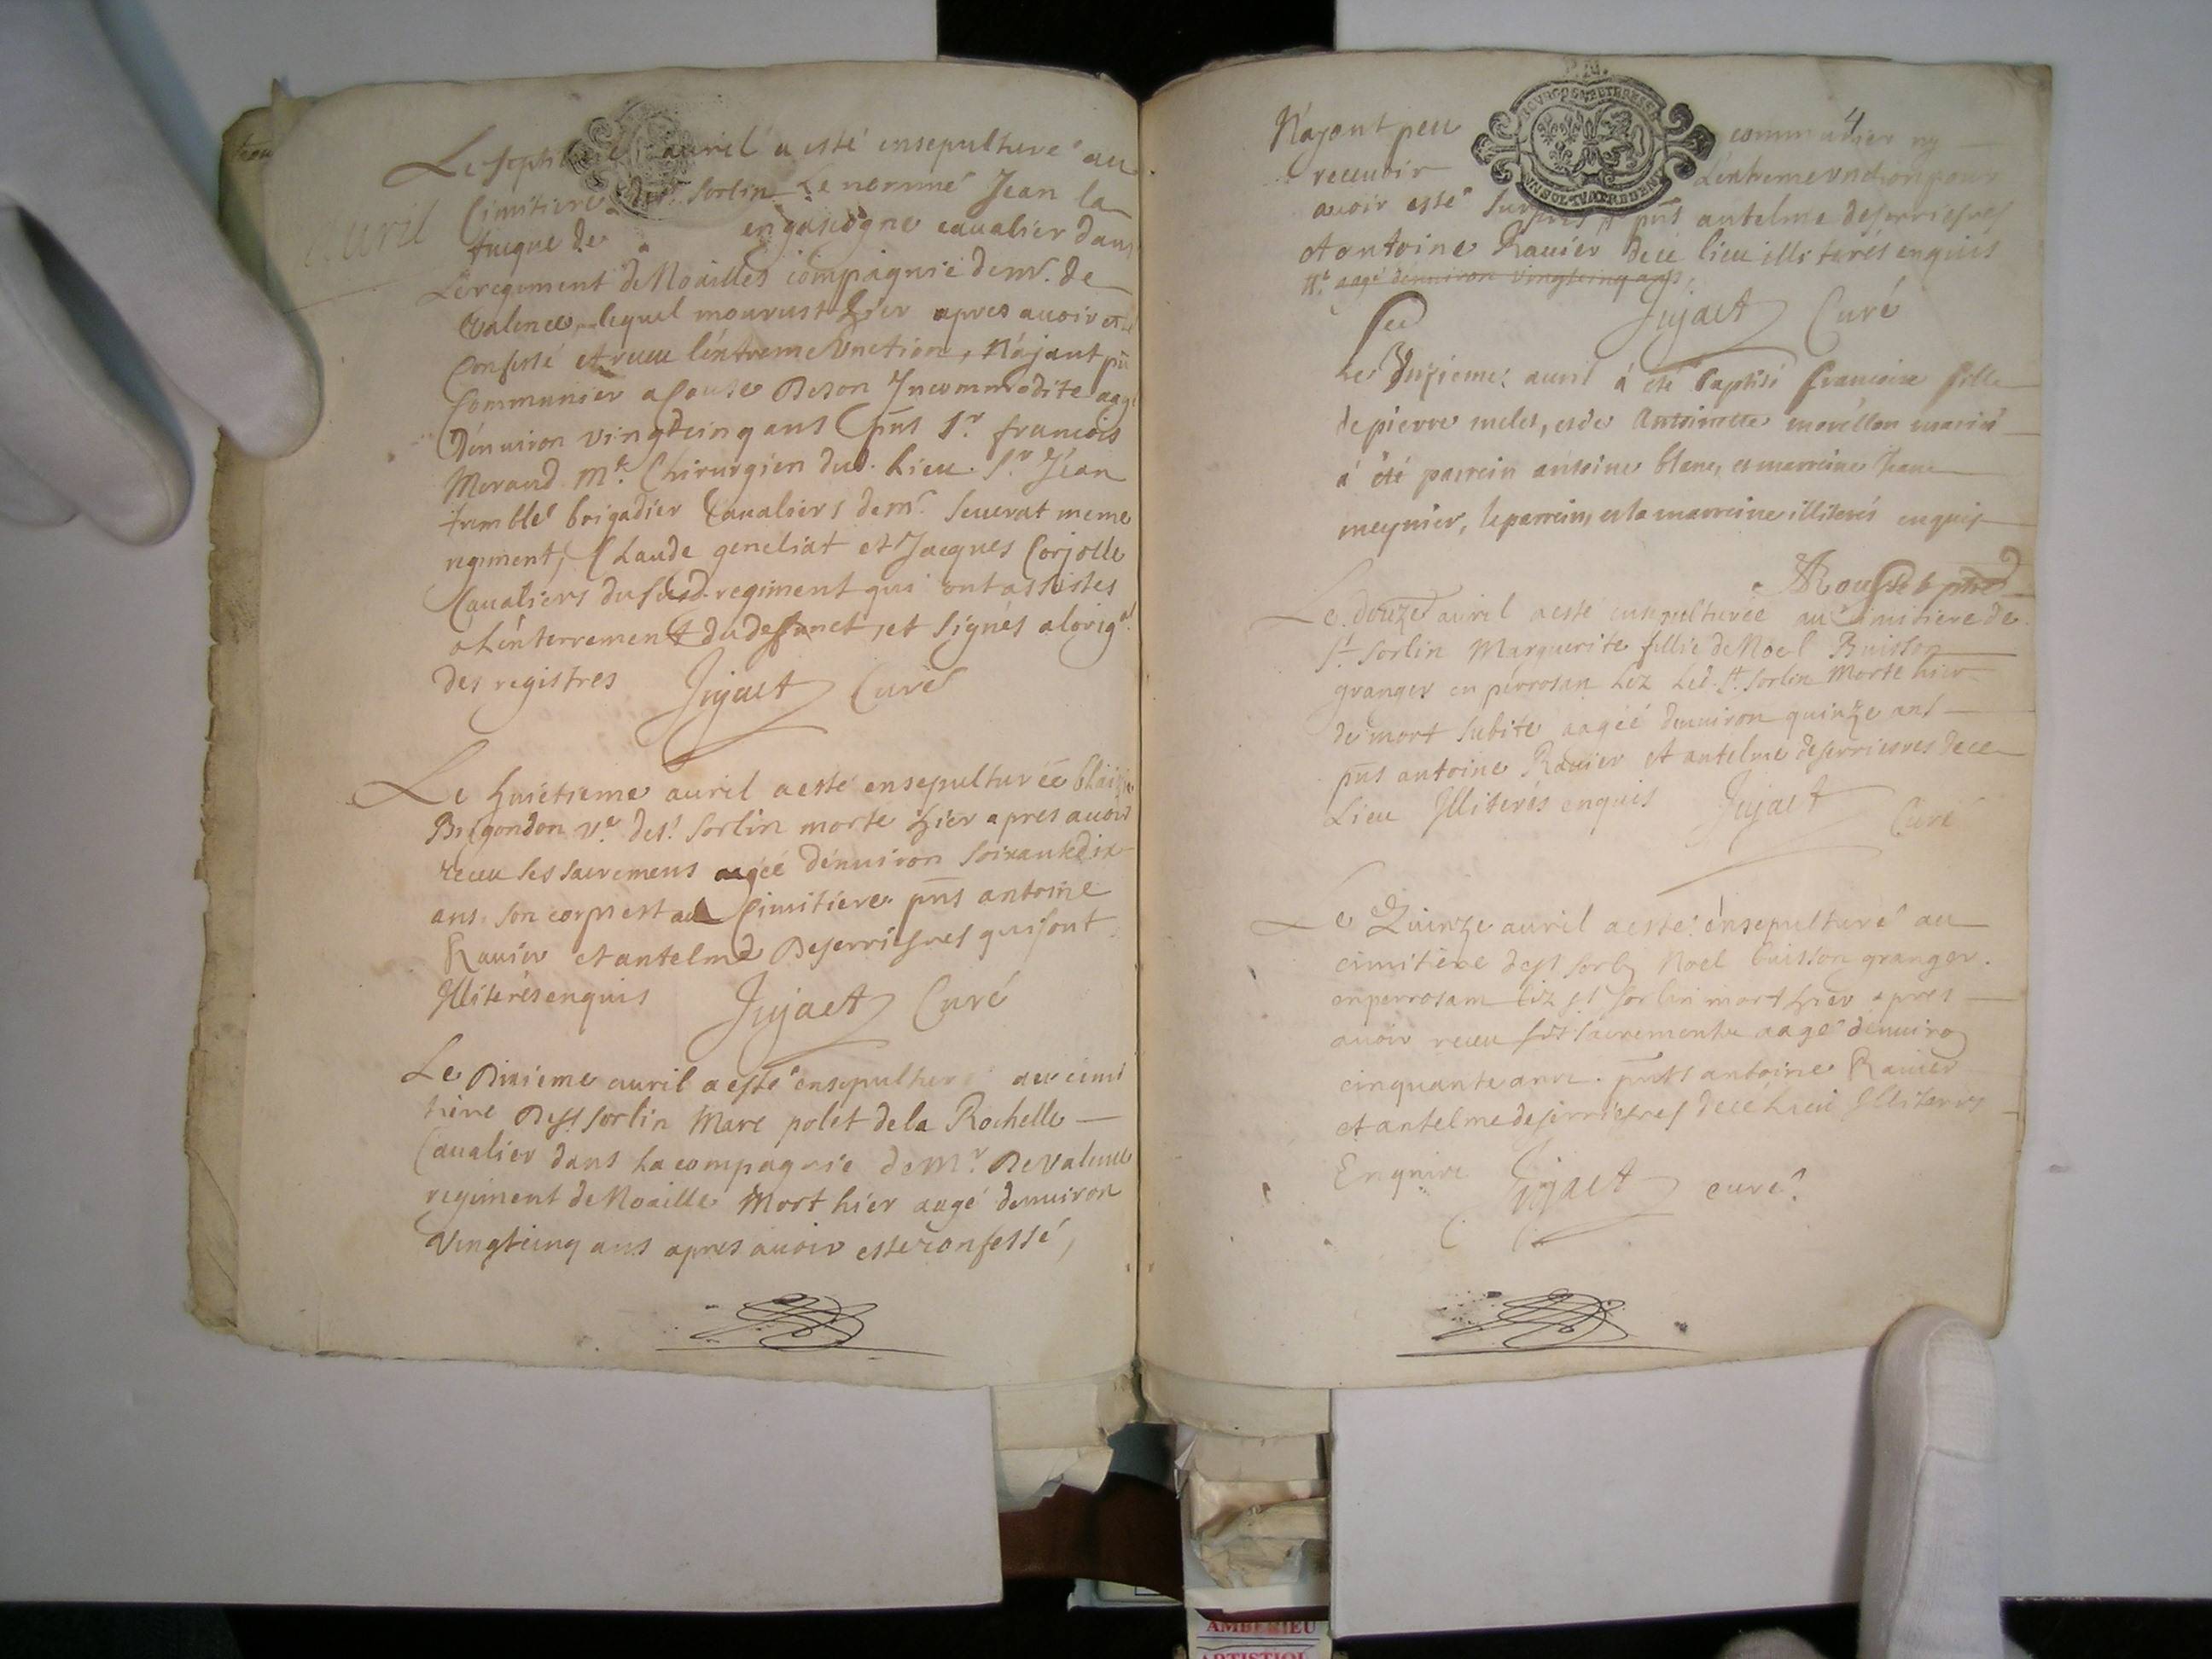 avril
Le septieme avril a esté ensepulturé au
Cimitiere de st. Sorlin Le nommé Jean la
fuigue de en gascogne cavalier dans
Le regiment de Noailles compagnie de mr. de
valence, lequel mourust hier apres avoir esté
Confessé et receu l'éxtreme Unction, N'ajant pû
Communier a Cause De son Incommodite aagé
d'énuiron vingtcinq ans pñs Sr. francois
Morand Me. Chirurgien dud. Lieu. Sr. Jéan
brigadier Cavaliers de mr. Seuerat meme
regiment, Claude geneliat et Jacques Corjolle
Cavaliers du susd. regiment qui ont assistes
a L'énterrement du deffunct, et signés a lorigl.
des registres Jujaet Curé
Le huictieme avril a esté ensepulturéé blaise
Brigondon ve. de st. Sorlin morte hier apres avoir
receu ses sacremens aagéé d'énuiron soixantedix
ans. son corps est au Cimitiere. pñs antoine
Ravier et antelme Deserriesres qui sont
Illiterés enquis Jujaet Curé
Le Dixieme avril a esté ensepulturé au cimi
tiére De st Sorlin Marc polet de la Rochelle
Cavalier dans La compagnie de Mr. De Valence
regiment de Noaille Mort hier aagé denuiron
Vingtcinq ans apres avoir esté confessé,
4
N'ajant peu communier ny
recevoir L'éxtreme unction pour
avoir esté surpris pñs antelme deserriesres
et antoine Ravier de ce lieu illiterés enquis
aagé denuiron vingtcinq ans
Jujaet Curé
Le Unzieme avril á eté baptisé francoise fille
de pierre meles, et de Antoinette morellon mariés
á été parrein antoine blanc, et marreine Jeane
meynier, le parrein, et la marreine illiterés enquis
Le douze avril a esté ensepulturéé au Cimitiere de
St. Sorlin Marguerite fillie de Noel Buisson
granger en perrosan Lez Led. st. Sorlin Morte hier
de mort subite aagéé denuiron quinze ans
pñs antoine Ravier et antelme deserriesres de ce
Lieu Illiterés enquis Jujaet Curé
Le Quinze avril a esté ensepulturé au
cimitiére de st sorlin Noel buisson granger.
en perrosam Léz st sorlin mort hier apres
avoir receu ses sacrements aagé denuiron
cinquante ans. pnts antoine Ravier
et antelme deserriesres de ce Lieu Illiteres
Enquire Jujaet curé
AMBERIEU